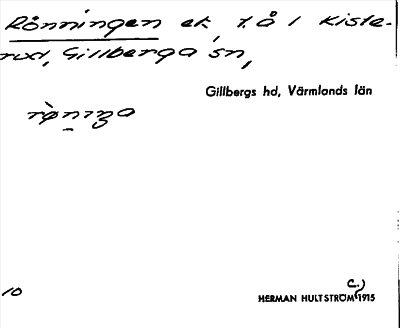 Rönningen ek, t. å 1 Kiste-
rud, Gillberga sn,
Gillbergs hd, Värmlands län
10
HERMAN HULTSTRÖM c.) 1915